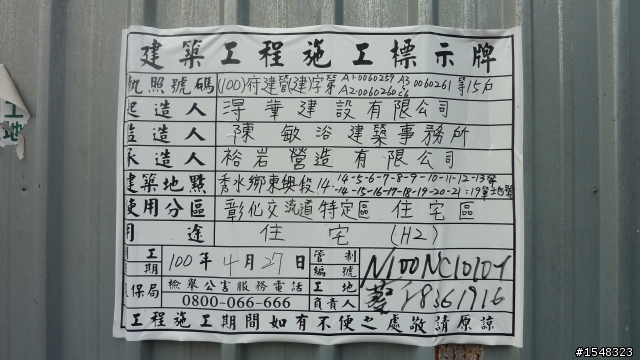 建築工程施工標示牌
執照號碼 (100)府建管(建)字第 A1-0060257 A3 0060261 等15戶
A2-0060260
起造人 淂華建設有限公司
監造人 陳敏浴建築事務所
承造人 裕岩營造有限公司
建築地點 秀水鄉東興段14、14-5-6-7-8-9-10-11-12-13
14-15-16-17-18-19-20-21=19筆地號
使用分區 彰化交流道特定區 住宅區
用途 住宅 (H2)
工期 100年4月27日 管制編號 N100NC1010Y
環保局 檢舉公害服務電話 0800-066-666 工地負責人 蔡
工程施工期間如有不便之處敬請原諒
#1548323